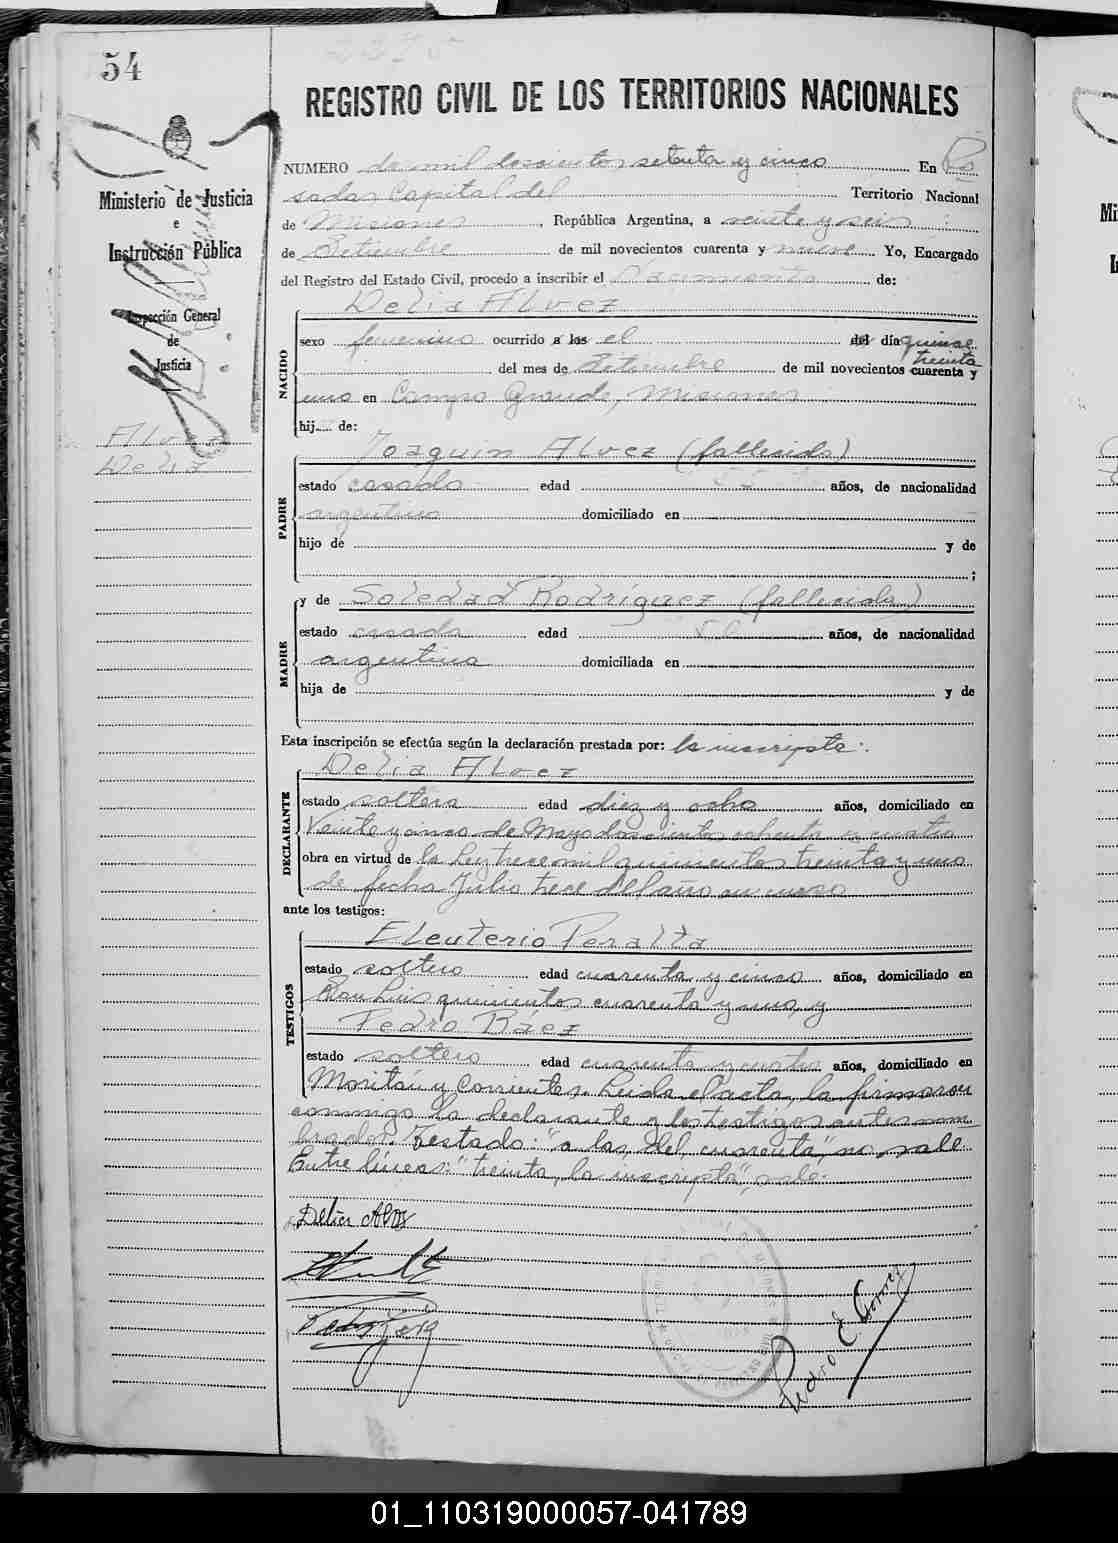 54
2275
REGISTRO CIVIL DE LOS TERRITORIOS NACIONALES
Ministerio de Justicia
e
Instrucción Pública
Inspección General
de
Justicia
Alvez
Delia
NUMERO dos mil doscientos setenta y cinco En Po
sadas Capital del Territorio Nacional
de Misiones, República Argentina, a veinte y seis
de Setiembre de mil novecientos cuarenta y nueve Yo, Encargado
del Registro del Estado Civil, procedo a inscribir el Nacimiento de:
Delia Alvez
NACIDO
sexo femenino ocurrido a las el del día quince
treinta
del mes de Setiembre de mil novecientos cuarenta y
uno en Campo Grande, Misiones
hij de:
Joaquin Alvez (fallecido)
PADRE
estado casado edad años, de nacionalidad
argentino domiciliado en
hijo de y de
;
y de Soledad Rodríguez (fallecida)
MADRE
estado casada edad años, de nacionalidad
argentina domiciliada en
hija de y de
Esta inscripción se efectúa según la declaración prestada por: la inscripta.
Delia Alvez
DECLARANTE
estado soltera edad diez y ocho años, domiciliado en
Veinte y cinco de Mayo doscientos ochenta y cuatro
obra en virtud de la Ley trece mil quinientos treinta y uno
de fecha Julio trece del año en curso
ante los testigos:
Eleuterio Peralta
TESTIGOS
estado soltero edad cuarenta y cinco años, domiciliado en
San Luis quinientos cuarenta y uno, y
Pedro Báez
estado soltero edad cuarenta y cuatro años, domiciliado en
Moritán y Corrientes. Leída el acta, la firmaron
conmigo la declarante y los testigos antes nom
brados. Testado: "a las, del, cuarenta", no vale
Entre líneas: "treinta, la inscripta", vale.
Delia Alvez
Pedro E.
01_110319000057-041789